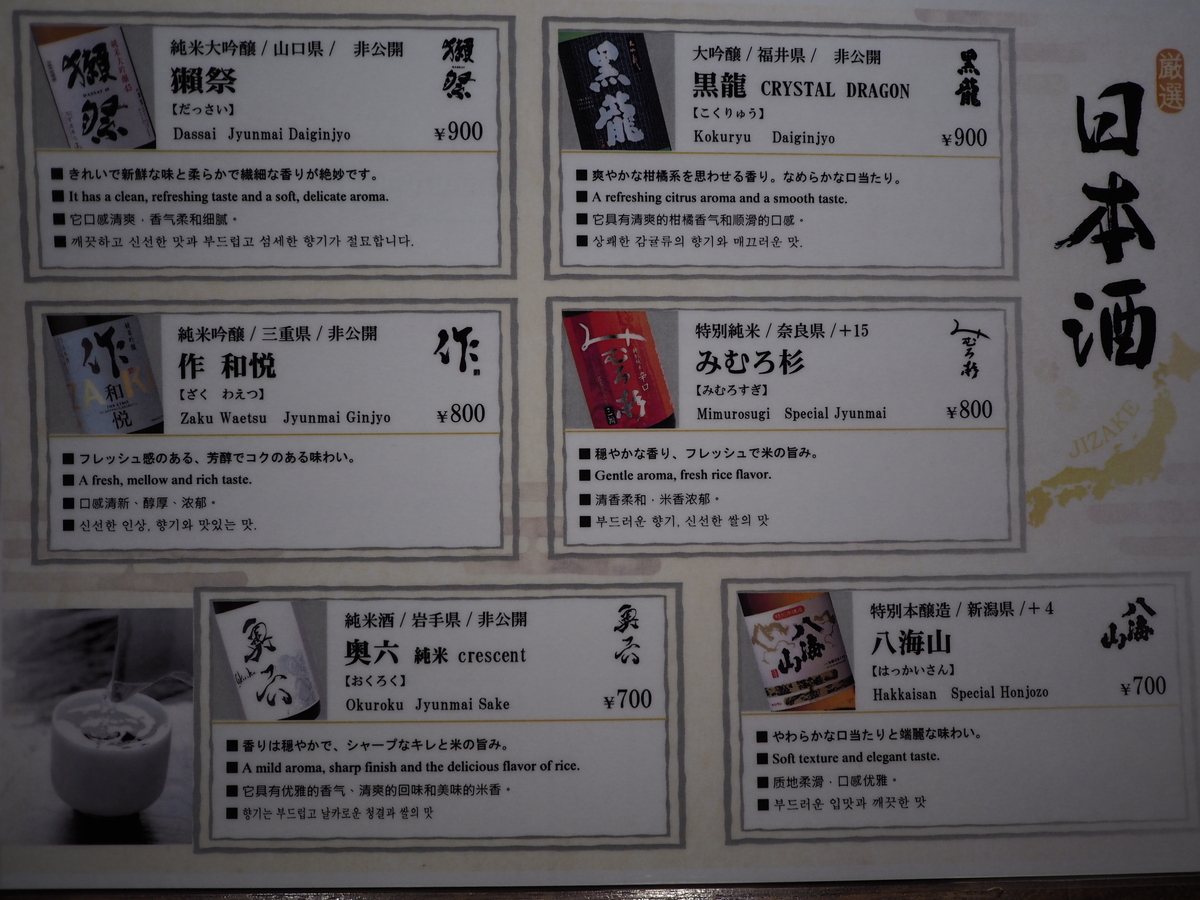 厳選
日本酒
JIZAKE
純米大吟醸 / 山口県 /　非公開
獺祭
【だっさい】
Dassai Jyunmai Daiginjyo
￥900
獺祭
■ きれいで新鮮な味と柔らかで繊細な香りが絶妙です。
■ It has a clean, refreshing taste and a soft, delicate aroma.
■ 它口感清爽，香气柔和细腻。
■ 깨끗하고 신선한 맛과 부드럽고 섬세한 향기가 절묘합니다.
大吟醸 / 福井県 /　非公開
黒龍 CRYSTAL DRAGON
【こくりゅう】
Kokuryu Daiginjyo
￥900
黒龍
■ 爽やかな柑橘系を思わせる香り。なめらかな口当たり。
■ A refreshing citrus aroma and a smooth taste.
■ 它具有清爽的柑橘香气和顺滑的口感。
■ 상쾌한 감귤류의 향기와 매끄러운 맛.
純米吟醸 / 三重県 / 非公開
作 和悦
【ざく　わえつ】
Zaku Waetsu Jyunmai Ginjyo
￥800
作
■ フレッシュ感のある、芳醇でコクのある味わい。
■ A fresh, mellow and rich taste.
■ 口感清新、醇厚、浓郁。
■ 신선한 인상, 향기와 맛있는 맛.
特別純米 / 奈良県 /+15
みむろ杉
【みむろすぎ】
Mimurosugi Special Jyunmai
￥800
みむろ杉
■ 穏やかな香り、フレッシュで米の旨み。
■ Gentle aroma, fresh rice flavor.
■ 清香柔和，米香浓郁。
■ 부드러운 향기, 신선한 쌀의 맛
純米酒 / 岩手県 / 非公開
奥六 純米 crescent
【おくろく】
Okuroku Jyunmai Sake
￥700
奥六
■ 香りは穏やかで、シャープなキレと米の旨み。
■ A mild aroma, sharp finish and the delicious flavor of rice.
■ 它具有优雅的香气、清爽的回味和美味的米香。
■ 향기는 부드럽고 날카로운 청결과 쌀의 맛
特別本醸造 / 新潟県 /+ 4
八海山
【はっかいさん】
Hakkaisan Special Honjozo
￥700
八海山
■ やわらかな口当たりと端麗な味わい。
■ Soft texture and elegant taste.
■ 质地柔滑，口感优雅。
■ 부드러운 입맛과 깨끗한 맛